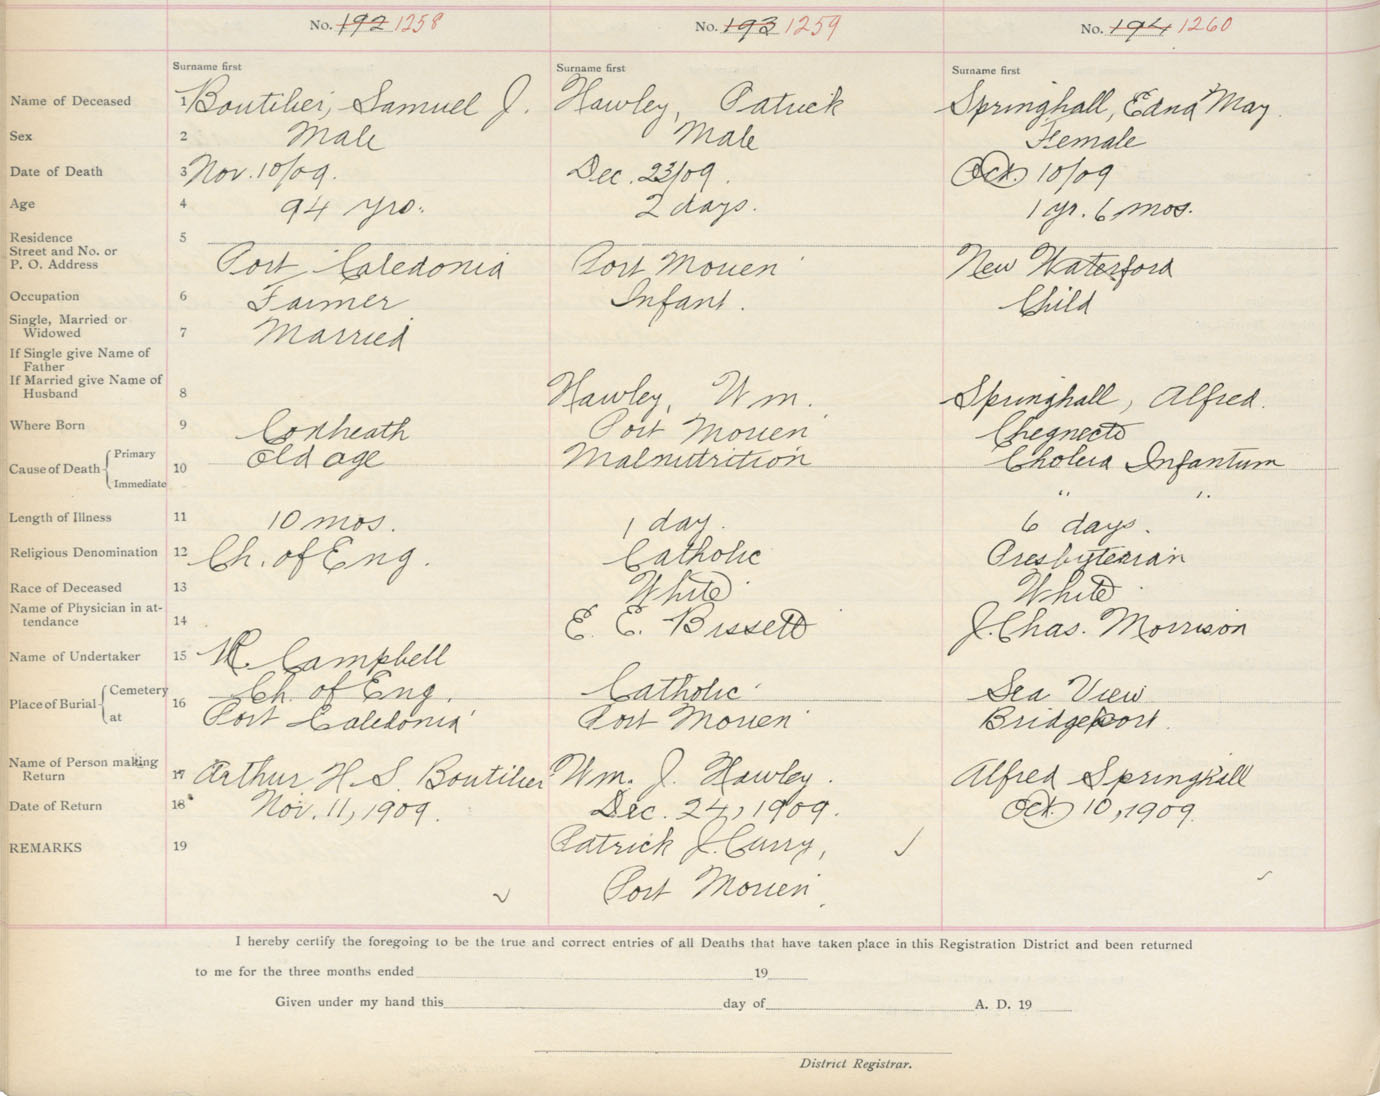 No. 192 1258 No. 193 1259 No. 194 1260
Surname first Surname first Surname first
Name of Deceased 1 Boutilier, Samuel J. Hawley, Patrick Springhall, Edna May
Sex 2 Male Male Female
Date of Death 3 Nov. 10/09. Dec. 23/09. Oct. 10/09
Age 4 94 yrs. 2 days. 1 yr. 6 mos.
Residence 5
Street and No. or
P. O. Address Port Caledonia Port Morien New Waterford
Occupation 6 Farmer Infant. Child
Single, Married or
Widowed 7 Married
If Single give Name of
Father
If Married give Name of
Husband 8 Hawley, Wm. Springhall, Alfred.
Where Born 9 Coxheath Port Morien Chegnecto
Cause of Death Primary 10 Old age Malnutrition Cholera Infantum
Immediate " "
Length of Illness 11 10 mos. 1 day. 6 days.
Religious Denomination 12 Ch. of Eng. Catholic Presbyterian
Race of Deceased 13 White White
Name of Physician in at-
tendance 14 E. E. Bissett J. Chas. Morrison
Name of Undertaker 15 Campbell
Place of Burial Cemetery 16 Ch. of Eng. Catholic Sea View
at Port Caledonia Port Morien Bridgeport.
Name of Person making
Return 17 Arthur H. S. Boutilier Wm. J. Hawley. Alfred Springhall
Date of Return 18 Nov. 11, 1909. Dec. 24, 1909. Oct. 10, 1909.
REMARKS 19 Patrick J. Curry,
Port Morien.
I hereby certify the foregoing to be the true and correct entries of all Deaths that have taken place in this Registration District and been returned
to me for the three months ended 19
Given under my hand this day of A. D. 19
District Registrar.